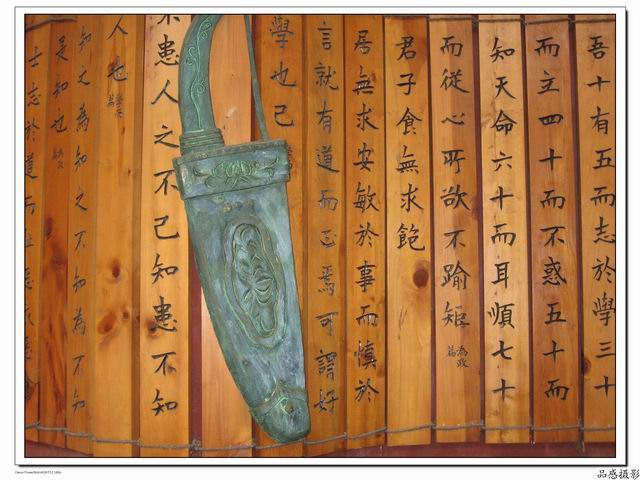 吾十有五而志於學三十
而立四十而不惑五十而
知天命六十而耳順七十
而從心所欲不踰矩 為政篇
君子食無求飽
居無求安敏於事而慎於
言就有道而正焉可謂好
學也已
不患人之不己知患不知
人也
知之為知之不知為不知
是知也
士志於道而
品感摄影